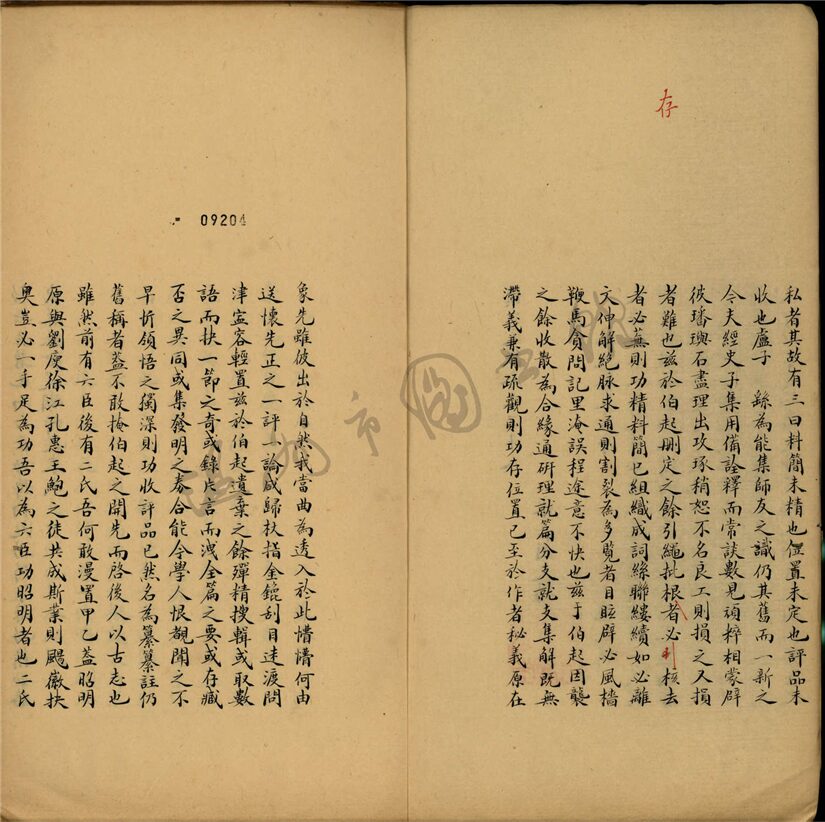 存
私者其故有三曰料簡未精也位置未定也評品未
收也盧子 繇為能集師友之識仍其舊而一新之
今夫經史子集用備詮釋而常談數見頑粹相蒙辟
彼璠璵石盡理出攻琢稍恕不名良工則損之又損
者雖也茲於伯起刪定之餘引繩批根者必刊核去
者必蕪則功精料簡已組織成詞絲聯縷續如必離
文伸解絕脉求通則割裂為多覽者目眩辟必風檣
鞭馬貪問記里淹誤程途意不快也茲于伯起因襲
之餘收散為合緣通研理就篇分支就支集解既無
滯義兼有疏觀則功存位置已至於作者秘義原在
09204
象先雖彼出於自然我當曲為透入於此懵懵何由
送懷先正之一評一論咸歸扶指金鎞刮目迷渡問
津寍容輕置茲於伯起遺棄之餘殫精搜輯或取數
語而抉一節之奇或錄片言而洩全篇之要或存臧
否之異同或集發明之券合能令學人恨覩聞之不
早忻領悟之獨深則功收評品已然名為纂纂註仍
舊稱者蓋不敢掩伯起之開先而啓後人以古志也
雖然前有六臣後有二氏吾何敢漫置甲乙蓋昭明
原與劉庾徐江孔惠王鮑之徒共成斯業則颺徽抉
奧豈必一手足為功吾以為六臣功昭明者也二氏